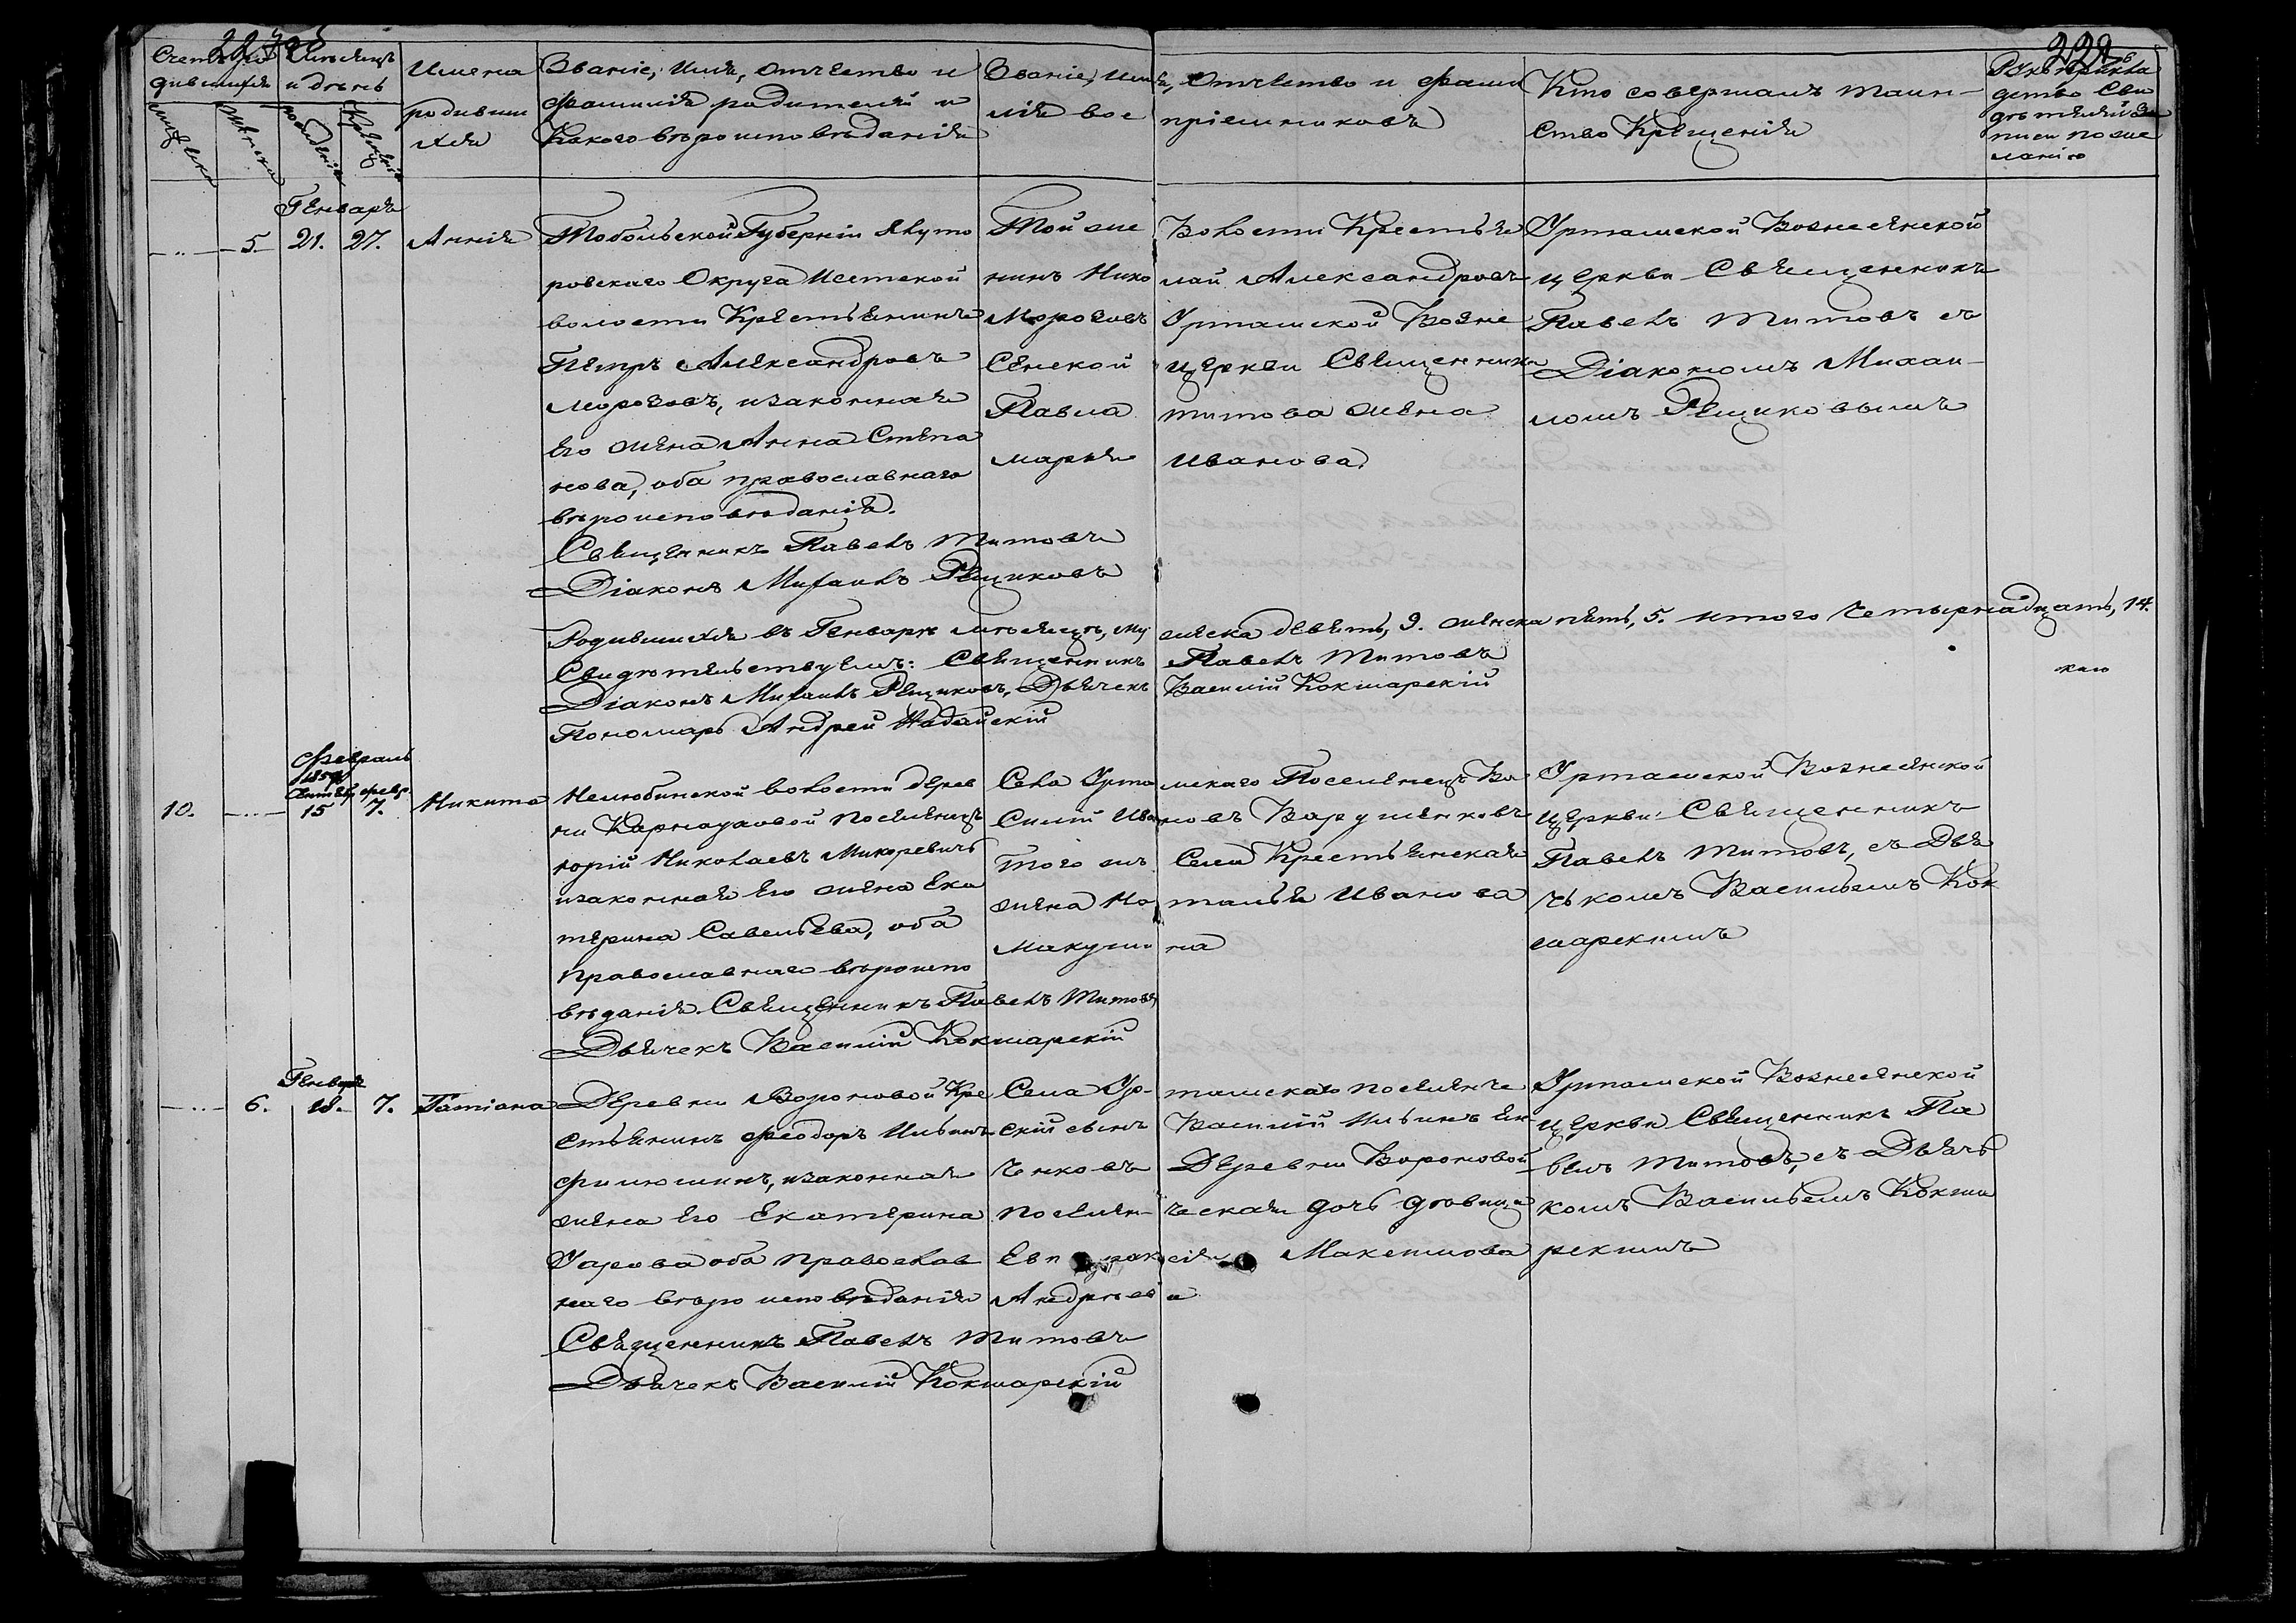 Счетъ ро
дившихся
Мѣсяцъ
и день
рожденія
Крещенія
Имена
родивши
хся
Званіе, имя, отчество и
фамилія родителей и
Какого вѣроисповѣданія
Званіе, имя, отчество и фами
лія воспріемниковъ
Кто совершалъ таин-
ство Крещенія
Рукоприкла
детво Сви
дѣтелей за
писи по же
ланію
Генваря
5 21. 27. Анна
Тобольской Губерніи Ялуто
ровскаго Округа Исетской
волости Крестьянинъ
Петръ Александровъ
Морозовъ, изаконная
Его жена Анна Степа
нова, оба православнаго
вѣроисповѣданія.
Священникъ Павелъ Титовъ
Діаконъ Михаилъ Рещиковъ
Той же Волости Крестья
нинъ Николай Александровъ
Морозовъ Урташской Возне
Сенской церкви Священника
Павла Титова жена
марья Иванова
Урташской Вознесенской
церкви Священникъ
Павелъ Титовъ съ
Діакономъ Михаи-
ломъ Рещиковымъ
Родившихся въ Генварѣ мѣсяцѣ, мужеска девять, 9. женска пять, 5. итого Четырнадцать, 14.
Свидѣтельствуемъ: Священникъ Павелъ Титовъ
Діаконъ Михаилъ Рещиковъ, Дьячекъ Василій Кокшарскій
Пономарь Андрей
Февраль
10. 15 февр. 7. Никита
Нелюбинской волости дерев
ни Карнауховой поселенецъ
юрій Николаевъ
изаконная Его жена Ека
терина Савельева, оба
Православнаго вѣроиспо
вѣданія. Священникъ Павелъ Титовъ
Дьячекъ Василій Кокшарскій
Села Урташскаго Поселенецъ Ва
силій Ивановъ
того жъ Села Крестьянская
жена Наталья Иванова
Макушина
Урташской Вознесенской
Церкви Священникъ
Павелъ Титовъ, съ Дья
чькомъ Васильемъ Кок
шарскимъ
Генваря
6. 18. 7. Татіана
Деревни Вороновой Кре
стьянинъ Феодоръ Ильинъ
Филюшинъ, изаконная
жена его Екатерина
Уарова оба Православ
наго вѣро исповѣданія
Священникъ Павелъ Титовъ
Дьячекъ Василій Кокшарскій
Села Урташскаго поселенче
скій сынъ Василій Ильинъ
Деревни Вороновой
поселенческая дочь дѣвица
Максимова
Андрѣева
Урташской Вознесенской
церкви Священникъ Па
велъ Титовъ, съ Дьячь
комъ Васильемъ Кокша
рскимъ